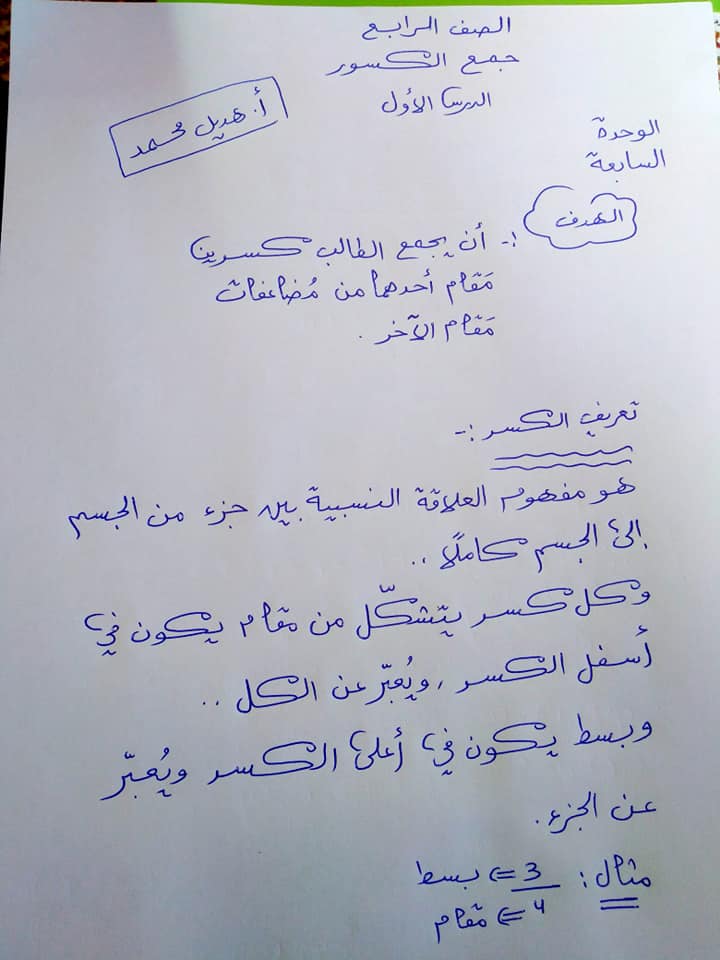 الصف الرابع
جمع الكسور
الدرس الأول
أ. هديل محمد
الوحدة
السابعة
الهدف :- أن يجمع الطالب كسرين
مَقام أحدهما من مُضاعفات
مَقام الآخر .
تعريف الكسر :-
هو مفهوم العلاقة النسبية بين جزء من الجسم
إلى الجسم كاملًا ..
وكل كسر يتشكّل من مقام يكون في
أسفل الكسر ، ويُعبّر عن الكل ..
وبسط يكون في أعلى الكسر ويُعبّر
عن الجزء .
مثال : 3 <= بسط
4 <= مقام